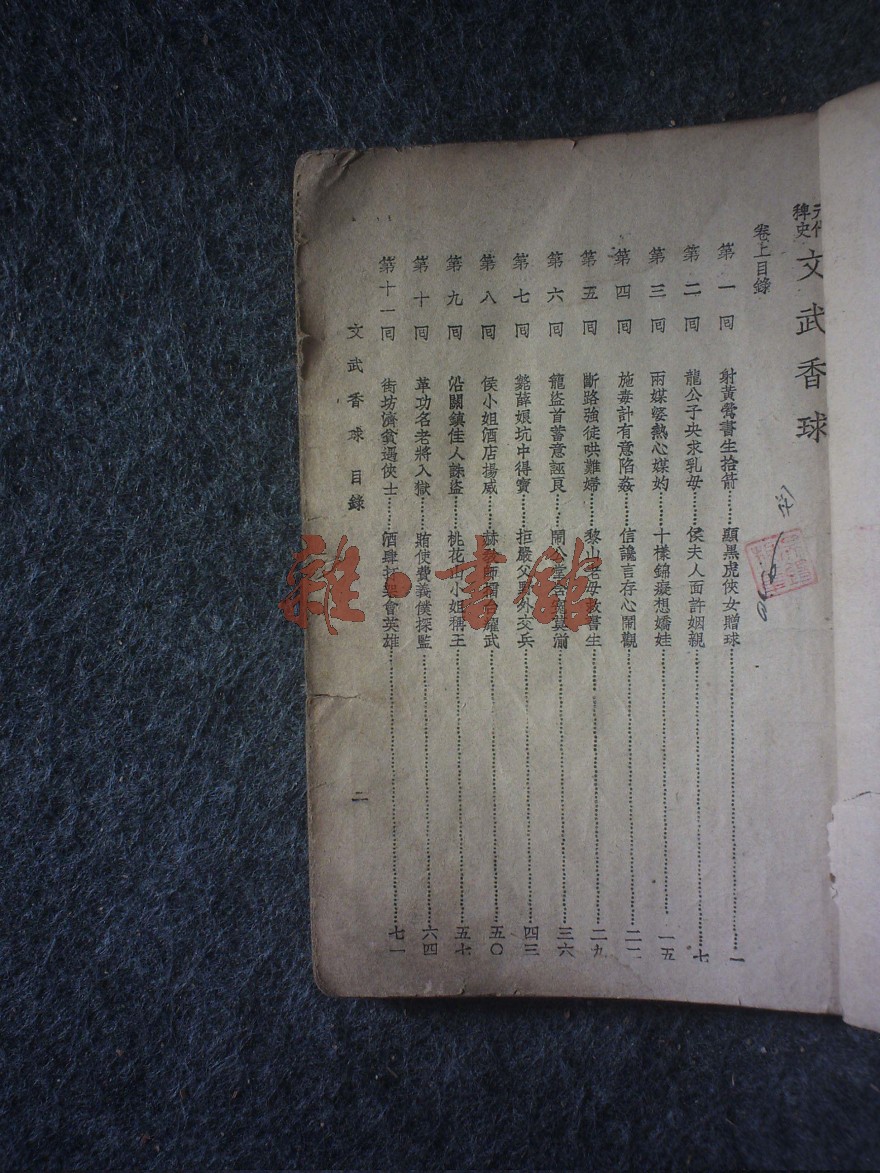 元代稗史 文武香球
卷上目錄
第一回 射黃鶯書生拾箭……顯黑虎俠女贈球……一
第二回 龍公子央求乳母……侯夫人面許姻親……七
第三回 兩媒婆熱心媒妁……十樣錦癡想嬌娃……一五
第四回 施毒計有意陷姦……信讒言存心鬧觀……二二
第五回 斷路強徒哄難婦……黎山老母救書生……二九
第六回 寵盜首蓄意誣良……鬧公堂含冤莫湔……三六
第七回 毙薛娘坑中得寶……拒嚴父野外交兵……四三
第八回 侯小姐酒店揚威……赫教師擂台耀武……五〇
第九回 沿關鎮佳人誅盜……桃花山小姐稱王……五七
第十回 革功名老將入獄……賄使費義僕探監……六四
第十一回 街坊濟貧遇俠士……酒肆打架會英雄……七一
文武香球 目錄
二
雜·書館